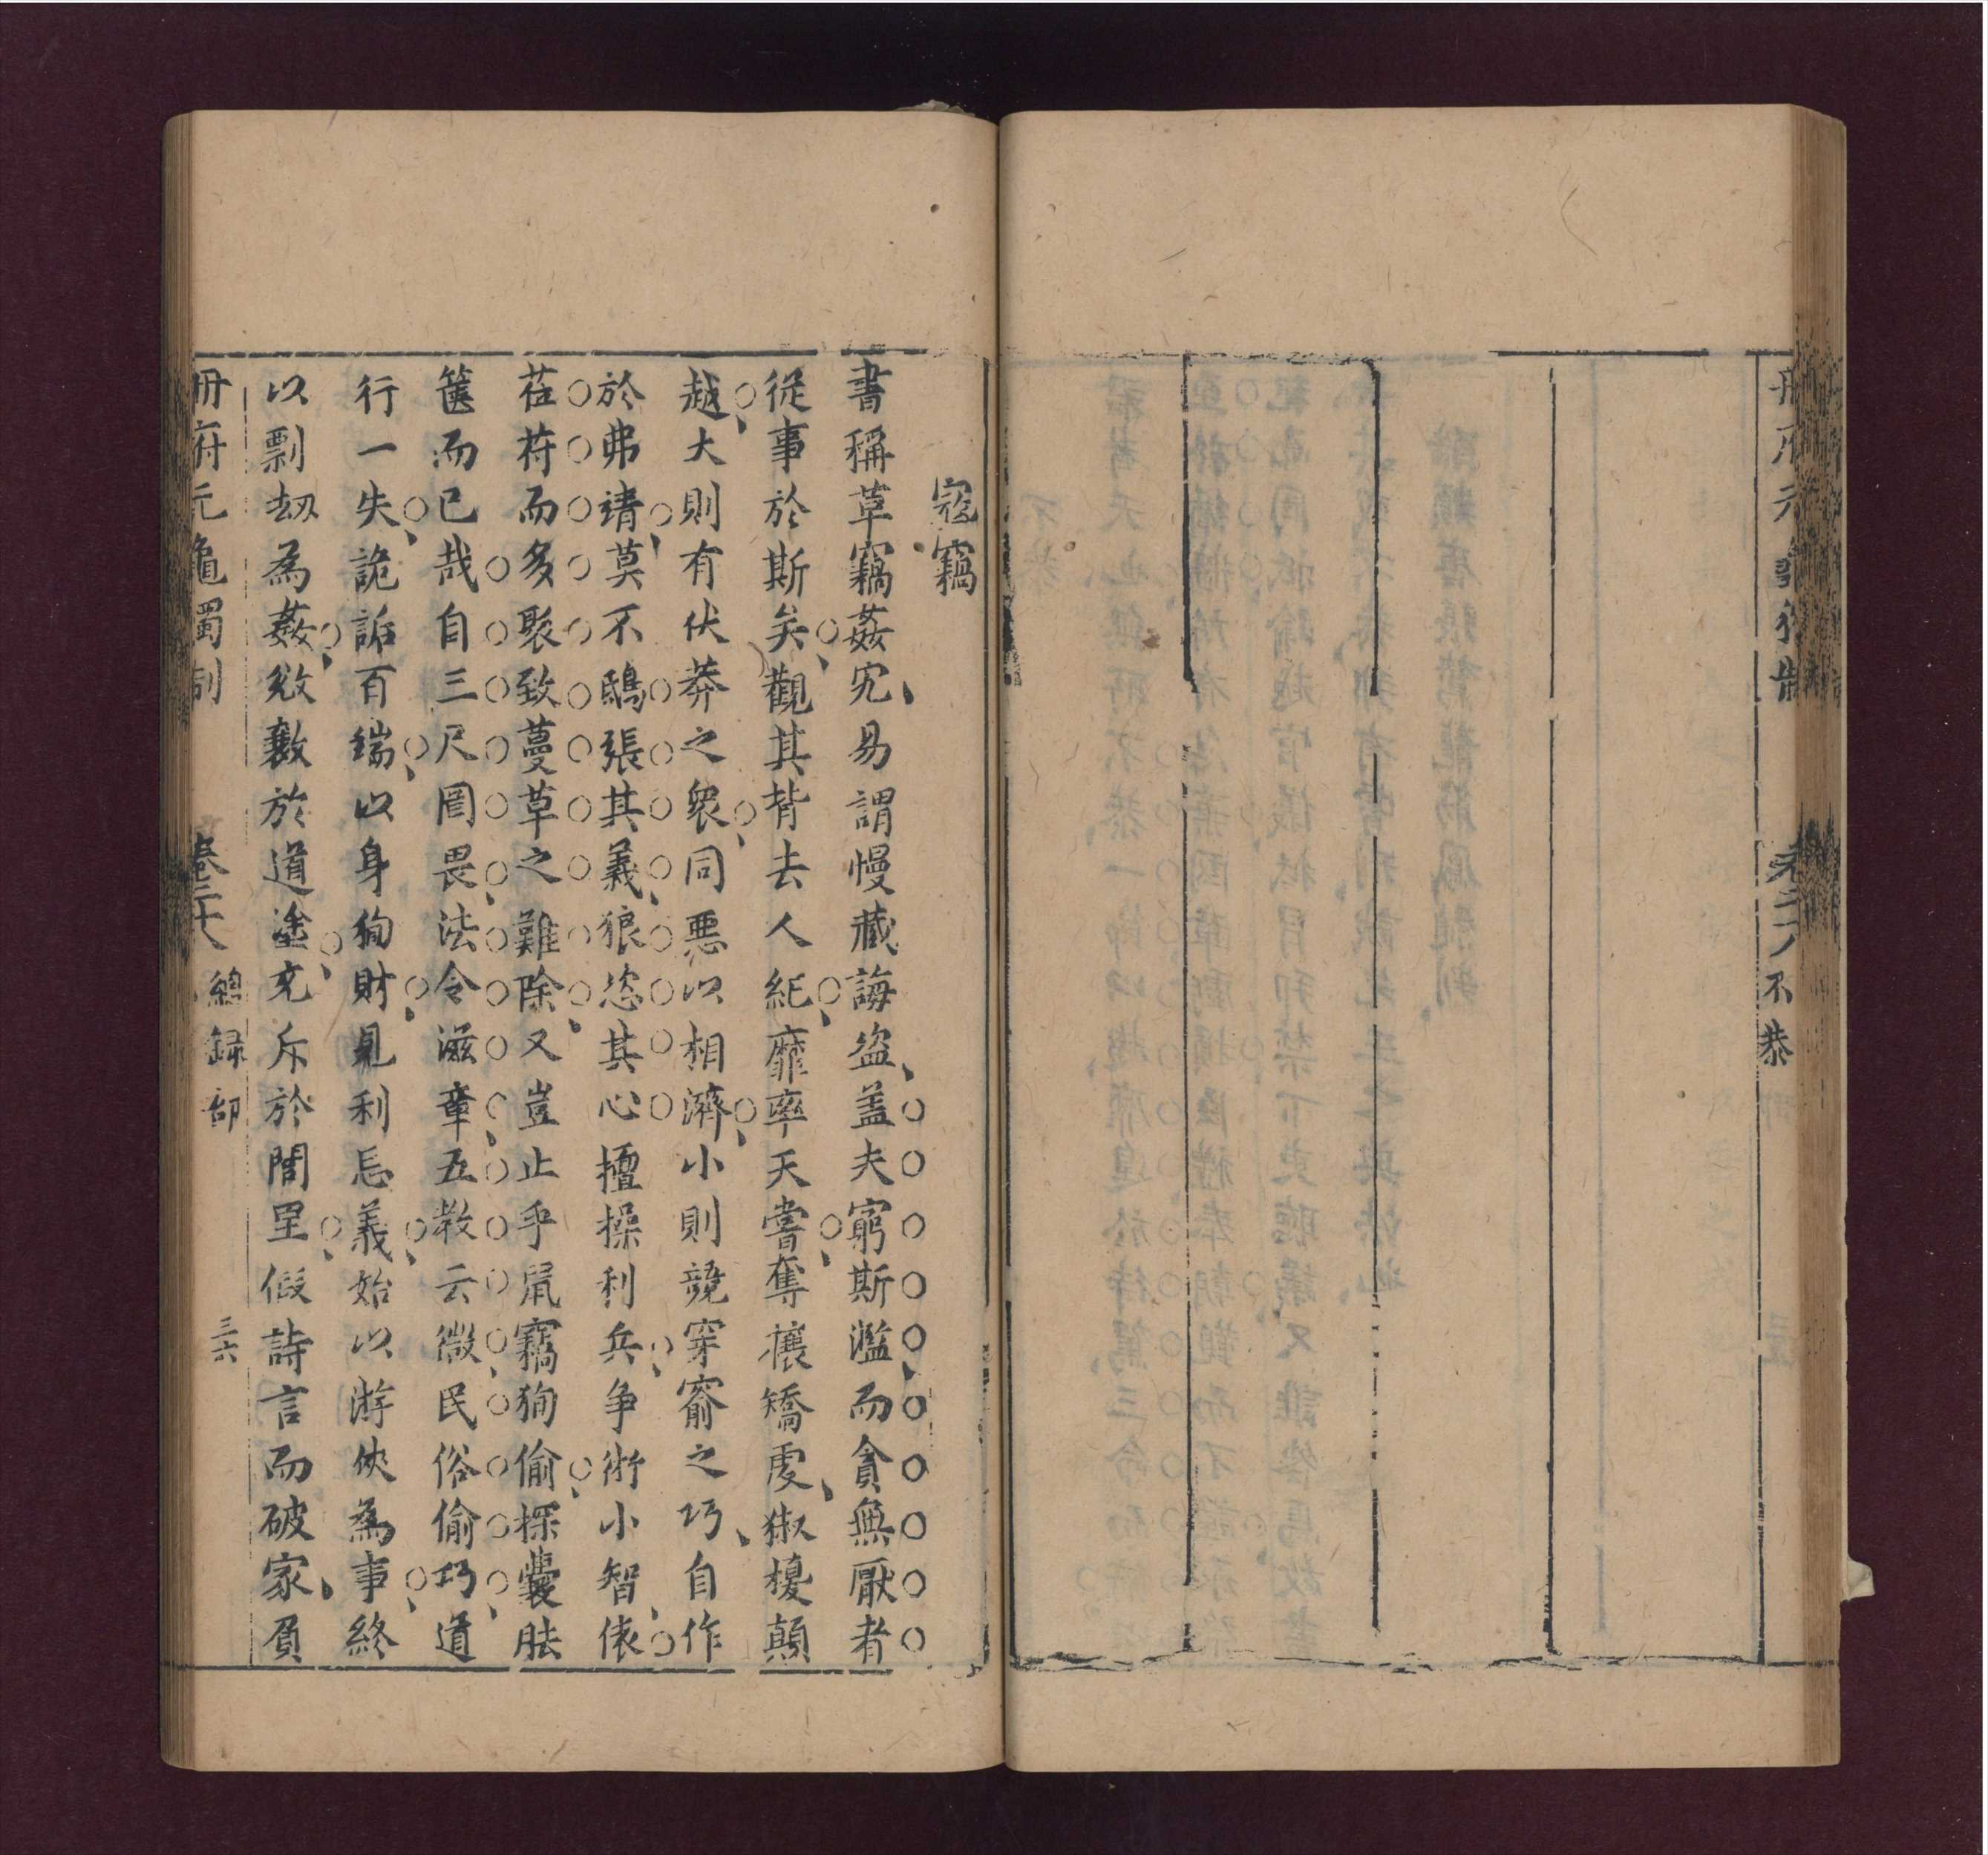 不恭
寇竊
書稱草竊姦宄易謂慢藏誨盜盖夫窮斯濫而貪無厭者
從事於斯矣觀其背去人紀靡率天嘗奪攘矯虔猖獗顛
越大則有伏莽之眾同惡以相濟小則競穿窬之巧自作
於弗靖莫不鴟張其義狼恣其心擅操利兵争衒小智俵
萑苻而多聚致蔓草之難除又豈止乎鼠竊狗偷探囊胠
篋而已哉自三尺罔畏法令滋章五教云微民俗偷巧道
行一失詭詐百端以身徇財見利忘義始以游俠為事終
以剽刼為姦敚敠於道塗充斥於閭里假詩言而破家負
冊府元龜獨制 卷二十八 總録部 三六